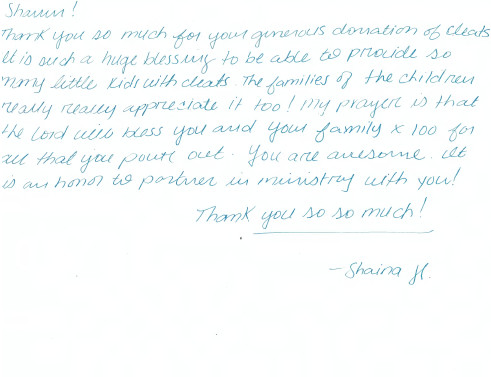 Shawn!
Thank you so much for your generous donation of cleats
It is such a huge blessing to be able to provide so
many little kids with cleats. The families of the children
really really appreciate it too! My prayer is that
the Lord will bless you and your family x 100 for
all that you pour out. You are awesome. It
is an honor to partner in ministry with you!
Thank you so so much!
- Shaina H.